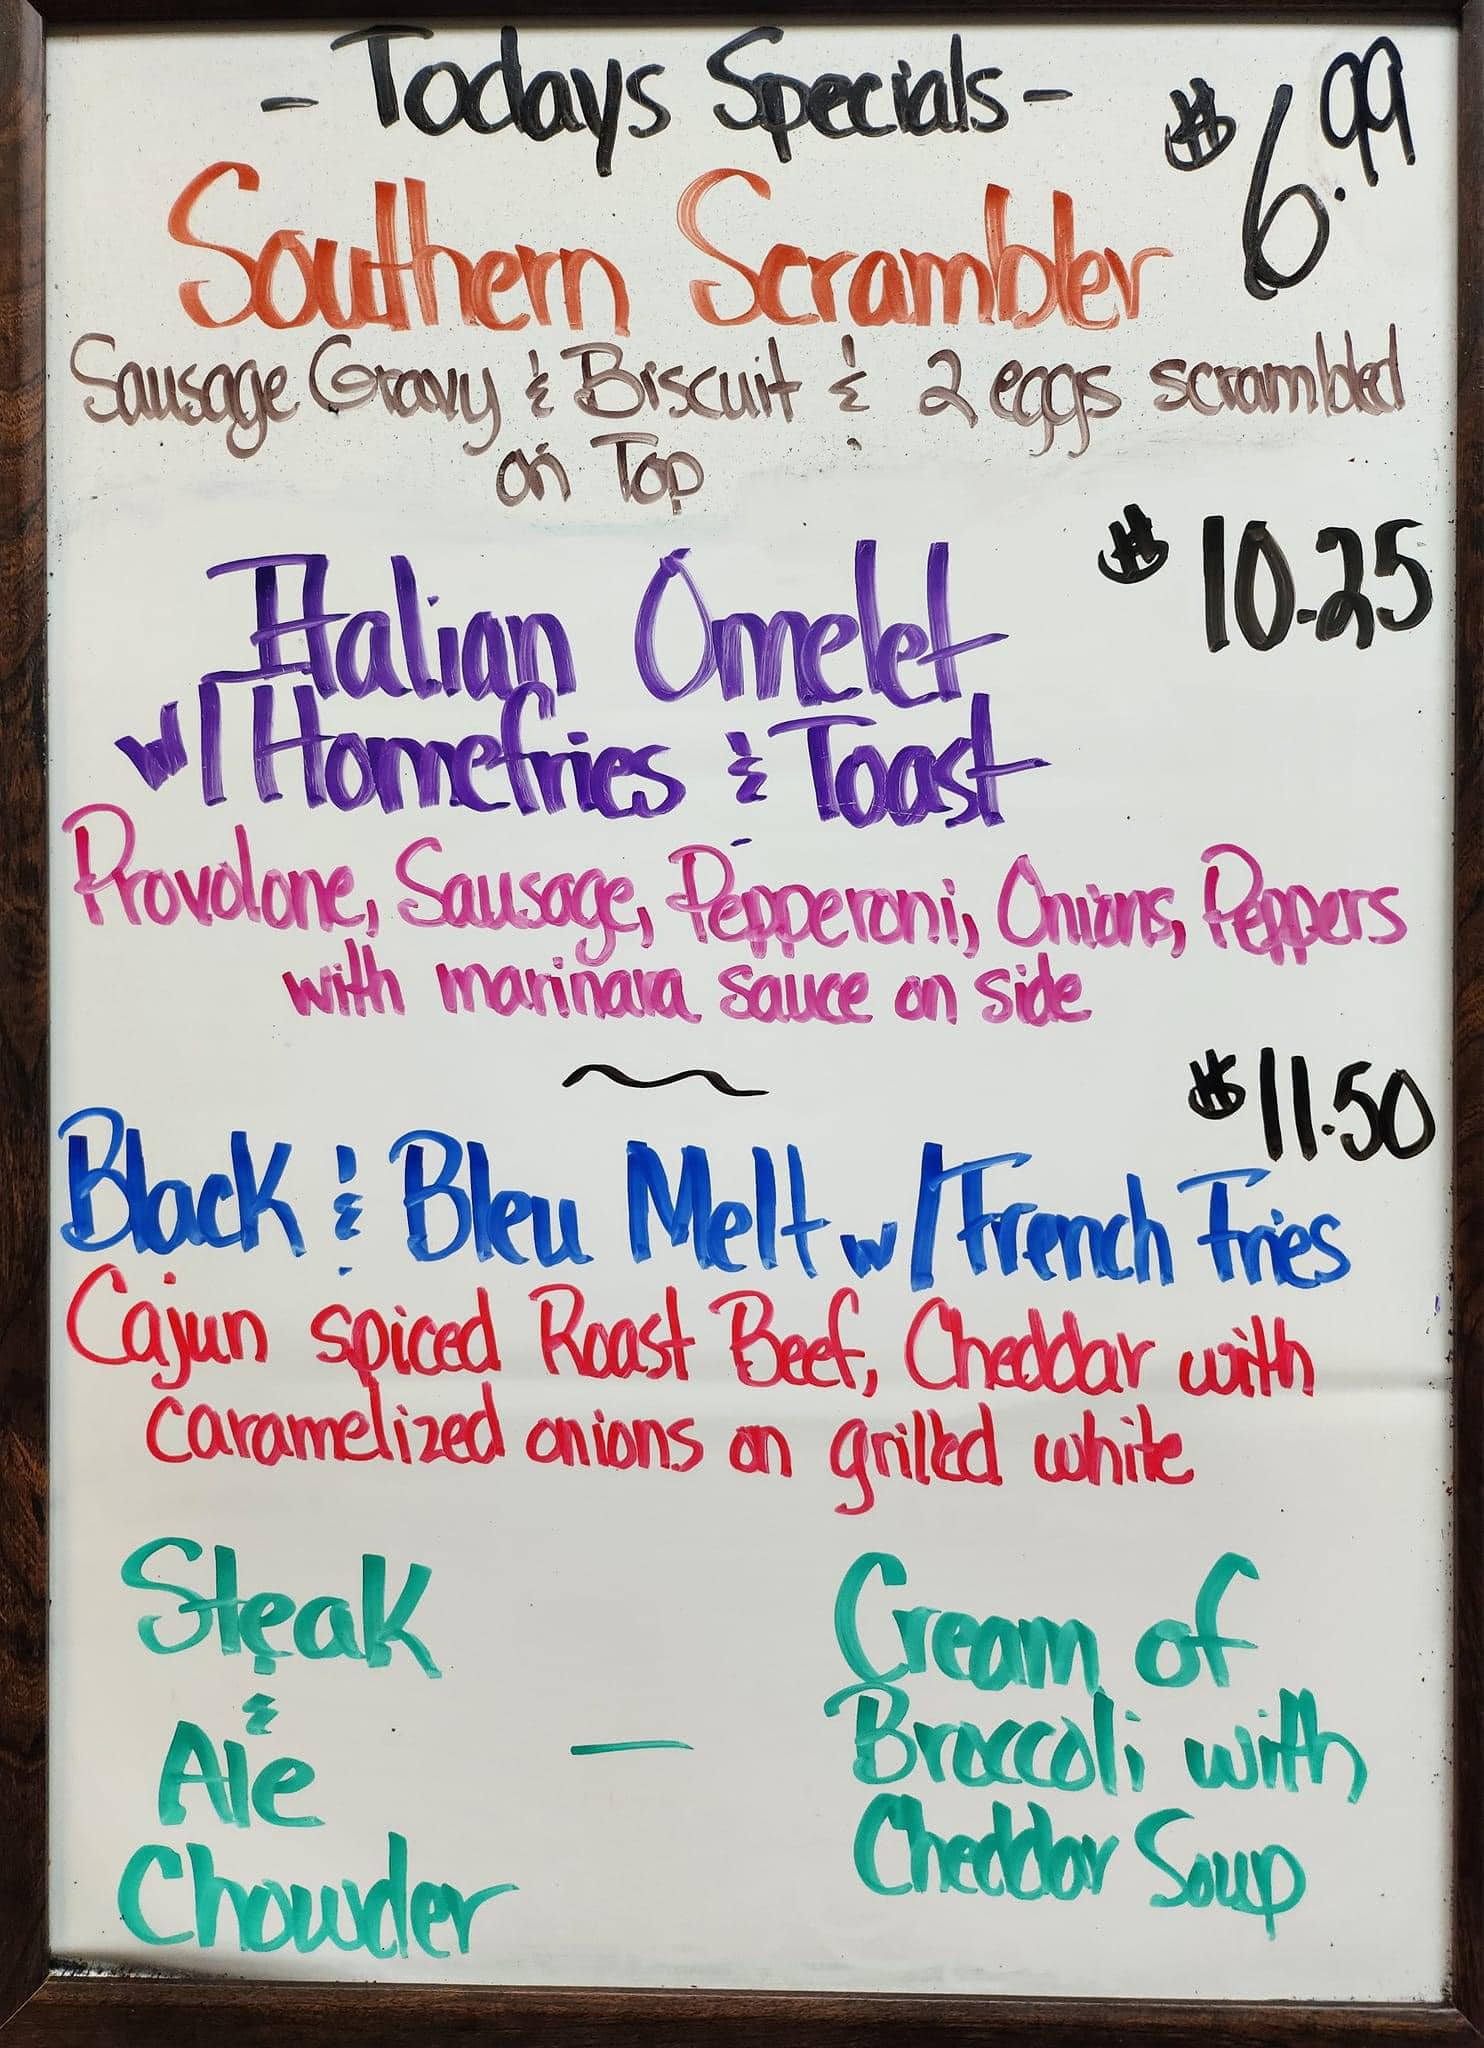 - Todays Specials -
$6.99
Southern Scrambler
Sausage Gravy & Biscuit & 2 eggs scrambled
on Top
$10.25
Italian Omelet
w/ Homefries & Toast
Provolone, Sausage, Pepperoni, Onions, Peppers
with marinara sauce on side
$11.50
Black & Bleu Melt w/ French Fries
Cajun spiced Roast Beef, Cheddar with
caramelized onions on grilled white
Steak
&
Ale
Chowder
—
Cream of
Broccoli with
Cheddar Soup